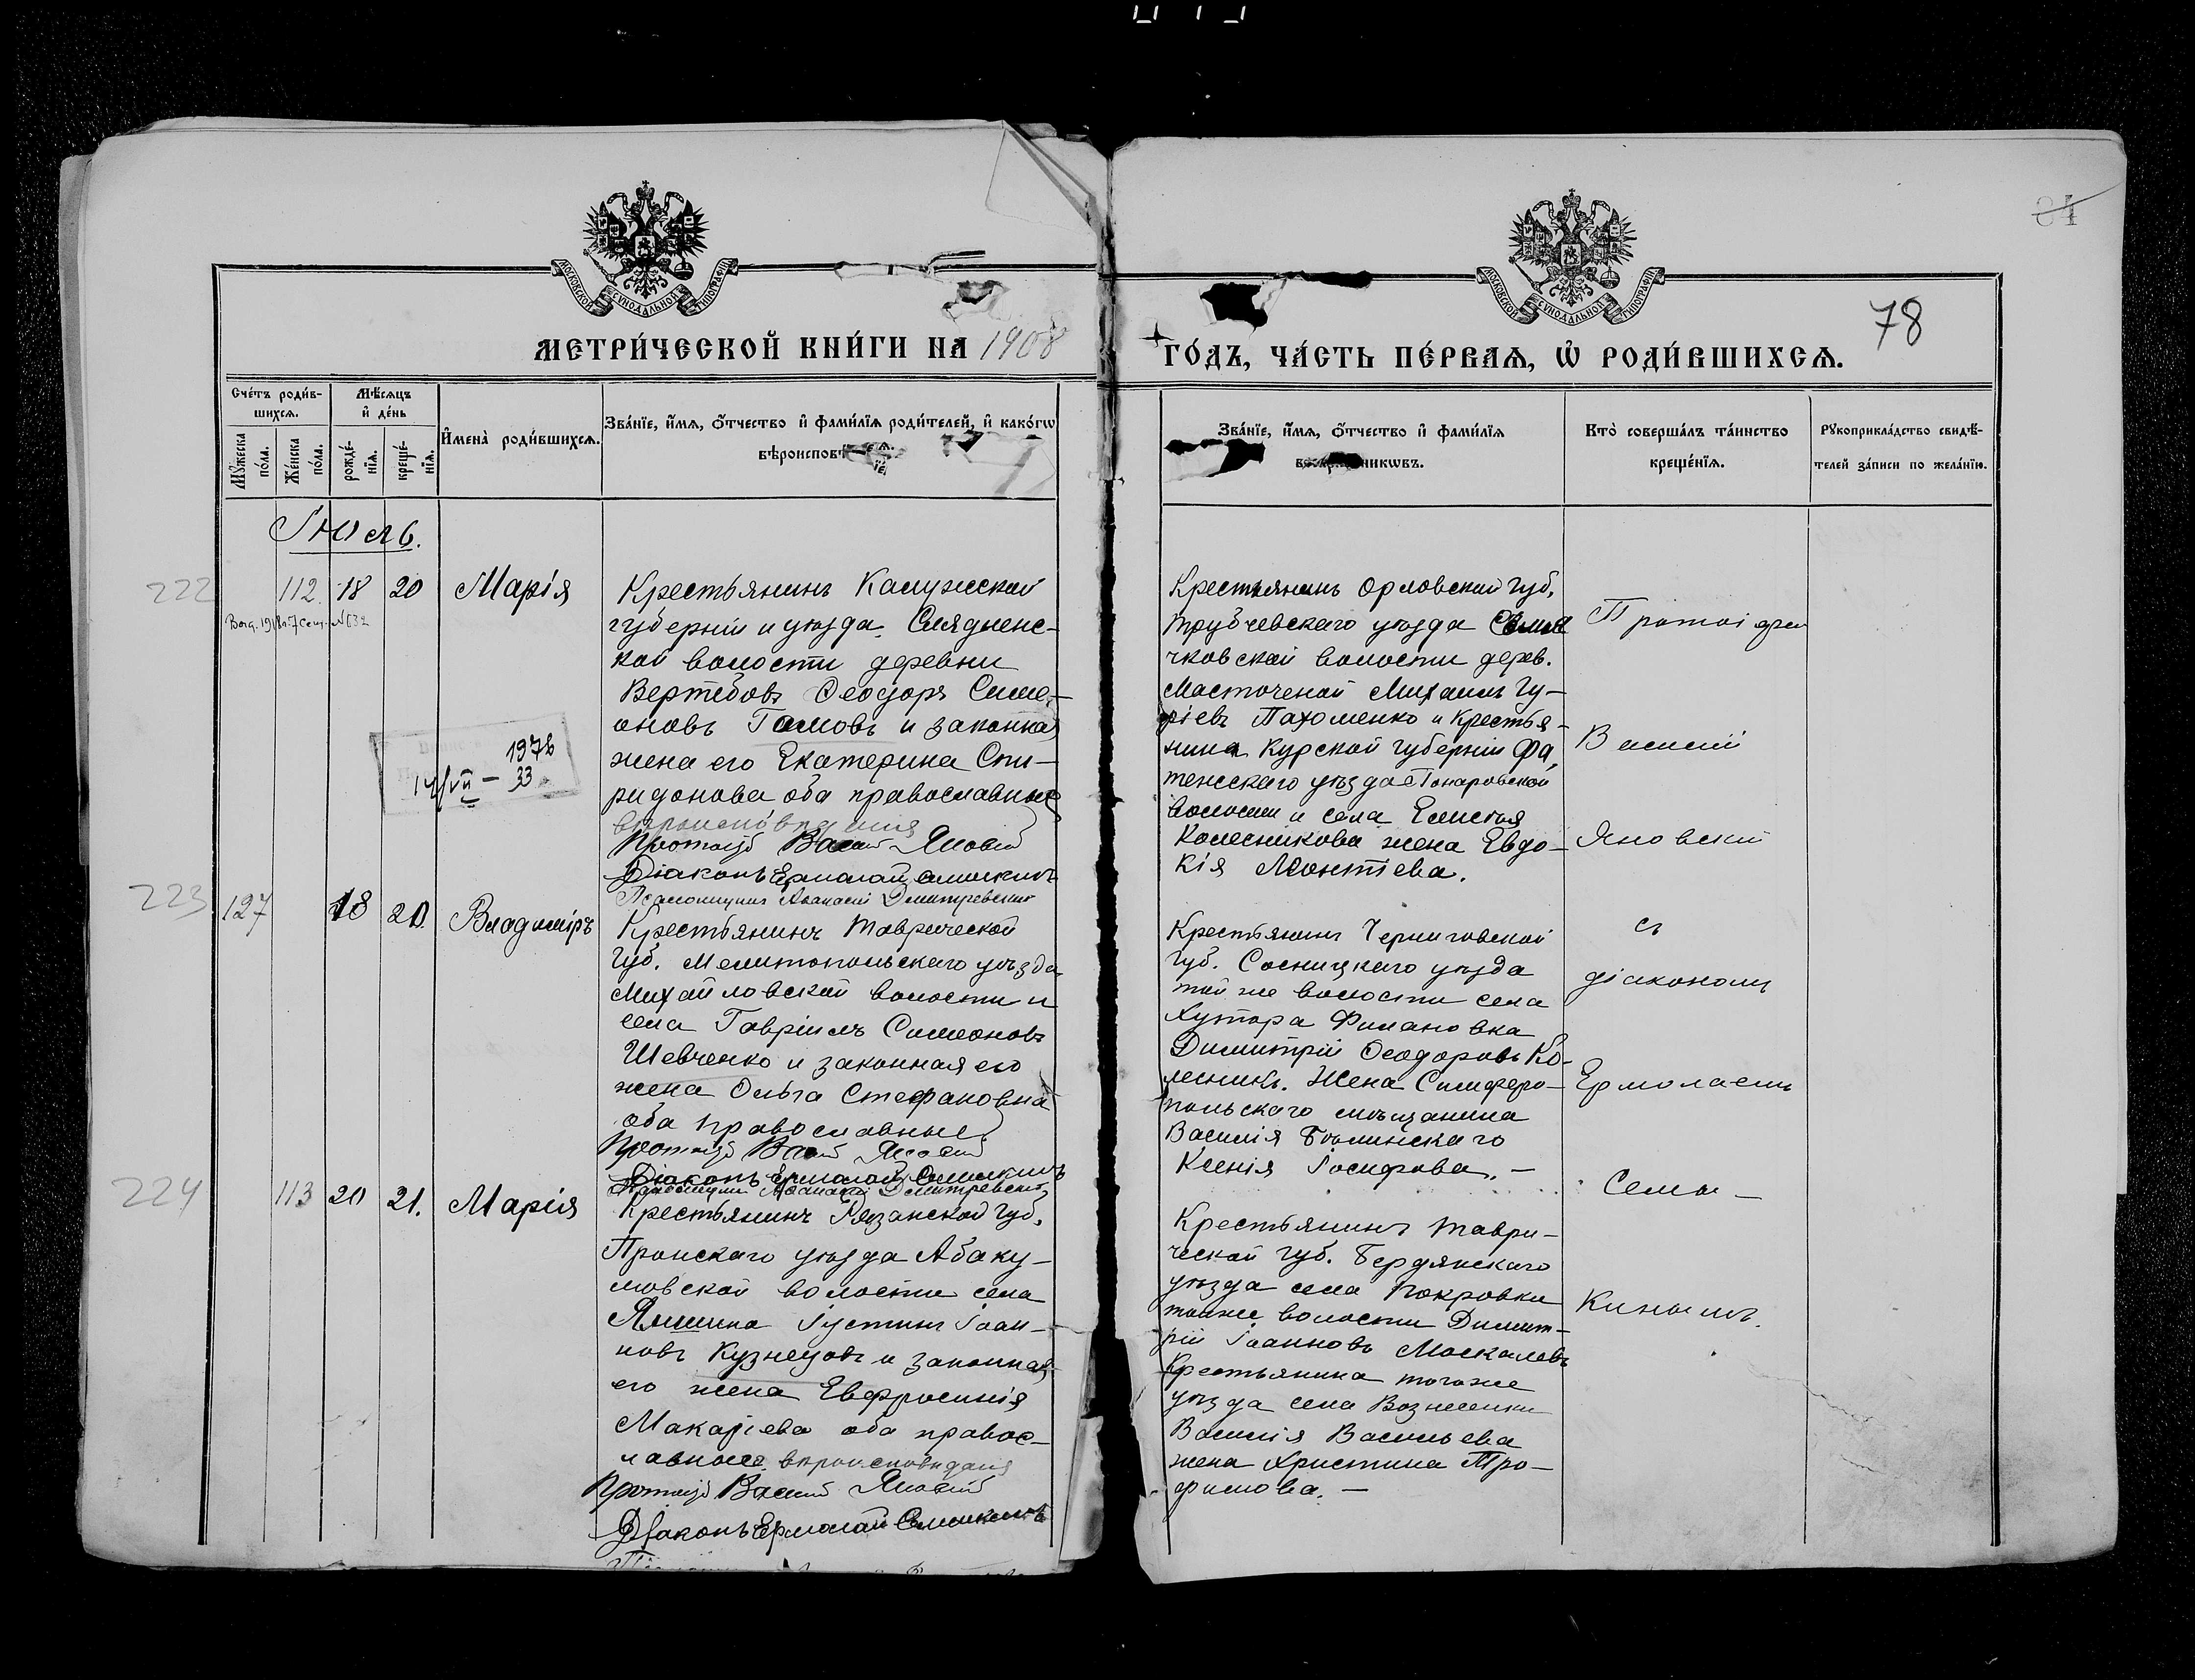 84
78
МОСКОВСКОЙ СѴНОДАЛЬНОЙ ТИПОГРАФІИ
МОСКОВСКОЙ СѴНОДАЛЬНОЙ ТИПОГРАФІИ
МЕТРИ́ЧЕСКОЙ КНИ́ГИ НА 1908
ГО́ДЪ, ЧА́СТЬ ПЕ́РВАѦ, Ѡ РОДИ́ВШИХСѦ.
Сче́тъ роди́в-
шихсѧ.
Мꙋ́жеска по́ла.
Же́нска по́ла.
Мѣ́сѧцъ
и҆ де́нь
рожде́-
нїѧ.
креще́-
нїѧ.
И҆мена̀ роди́вшихсѧ.
Зва́нїе, и҆́мѧ, ѻ҆́тчество и҆ фами́лїѧ роди́телей, и҆ како́гѡ
вѣроисповѣ
Зва́нїе, и҆́мѧ, ѻ҆́тчество и҆ фами́лїѧ
никѡвъ.
Кто̀ соверша́лъ та́инство
креще́нїѧ.
Рꙋкоприкла́дство свидѣ́-
телей за́писи по жела́нїю.
Іюль.
222
112. 18 20 Марія
Крестьянинъ Калужской
губерніи и уѣзда
кой волости деревни
Вертебовъ Ѳеодоръ Симе-
оновъ и законная
жена его Екатерина Спи-
ридонова оба православные
вѣроисповѣданія
Протоіер Васил Яновскій
Діаконъ Ермолай
Псаломщикъ Аѳанасій Дмитревскій
1978
14/VII – 33
Крестьянинъ Орловской губ,
Трубчевскаго уѣзда
чковской волости дерев.
Михаилъ Гу-
ріевъ Пахоменко и крестья-
нина Курской губерніи Фа-
тежскаго уѣзда
волости и села
Колесникова жена Евдо-
кія Леонтіева.
223
127 18 20. Владиміръ
Крестьянинъ Таврической
губ. Мелитопольскаго уѣзда
Михайловской волости и
села Гавріилъ Симеоновъ
Шевченко и законная его
жена Ольга Стефановна
оба православные.
Протоіер Васил Яновскій
Діаконъ Ермолай
Псаломщикъ Аѳанасій Дмитревскій
Крестьянинъ Черниговской
губ. Сосницкаго уѣзда
той же волости села
Хутора Филановка
Димитрій Ѳеодоровъ Ко-
лесникъ. Жена Симферо-
польскаго мѣщанина
Василія
Ксенія Іосифова. –
224
113 20 21. Марія
Крестьянинъ Рязанской губ.
Пронскаго уѣзда Абаку-
мовской волости села
Яшина Іустинъ Іоан-
новъ Кузнецовъ и законная
его жена Евфросинія
Макаріева оба правос-
лавные вѣроисповѣданія
Протоіер Васил Яновскій
Діаконъ Ермолай
Крестьянинъ Таври-
ческой губ. Бердянскаго
уѣзда села Покровки
тойже волости Димит-
рій Іоанновъ Москалевъ
Крестьянина тогоже
уѣзда села Вознесенки
Василія Васильева
жена Христина Тро-
фимова. –
Протоіерей
Василій
Яновскій
съ
діакономъ
Ермолаемъ